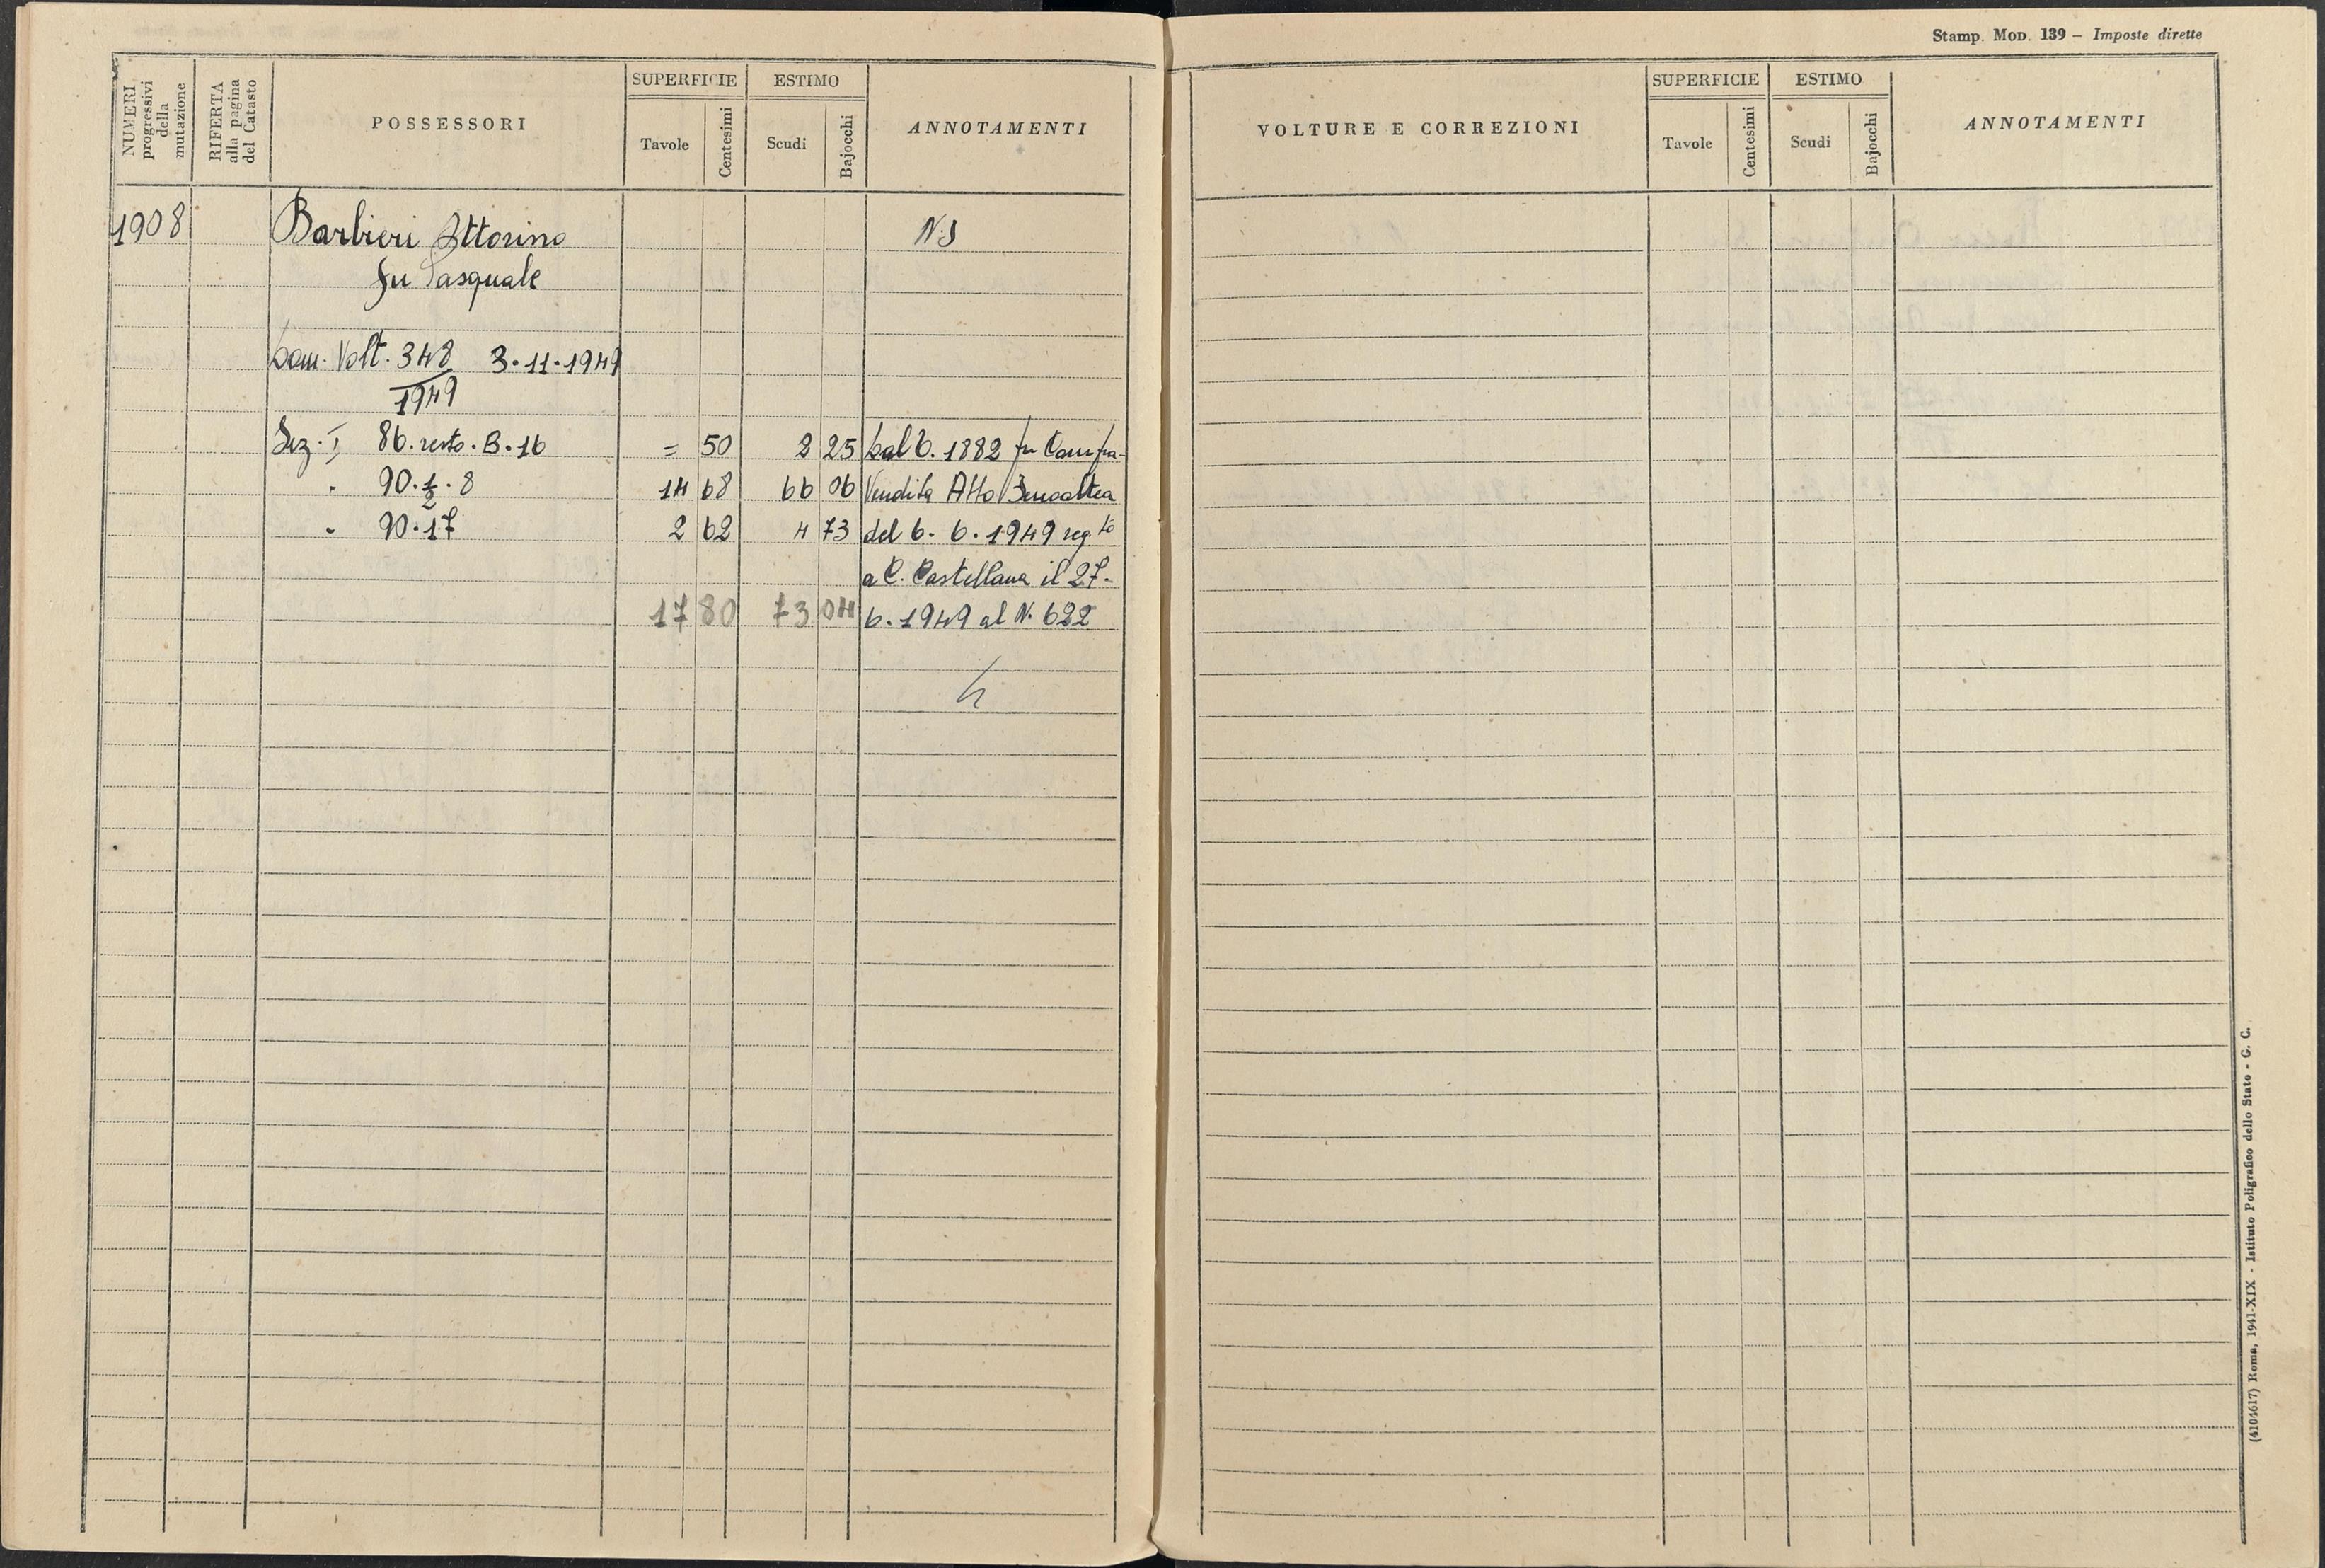 Stamp. Mod. 139 – Imposte dirette
NUMERI progressivi della mutazione
RIFERTA alla pagina del Catasto
POSSESSORI
SUPERFICIE
Tavole
Centesimi
ESTIMO
Scudi
Bajocchi
ANNOTAMENTI
VOLTURE E CORREZIONI
SUPERFICIE
Tavole
Centesimi
ESTIMO
Scudi
Bajocchi
ANNOTAMENTI
1908 Barbieri Ittorino
fu Pasquale
Dom. Volt. 348 3.11.1949
1949
Sez. I 86. resto. B. 16 = 50 2 25 Dal C. 1882 per Compra-
" 90. 1/2 . 8 14 68 66 06 Vendita Atto
" 90.17 2 62 4 73 del 6. 6. 1949 reg.to
a C. Castellana il 27.
17 80 73 04 6. 1949 al N. 622
(4104617) Roma, 1941-XIX - Istituto Poligrafico dello Stato - G. C.